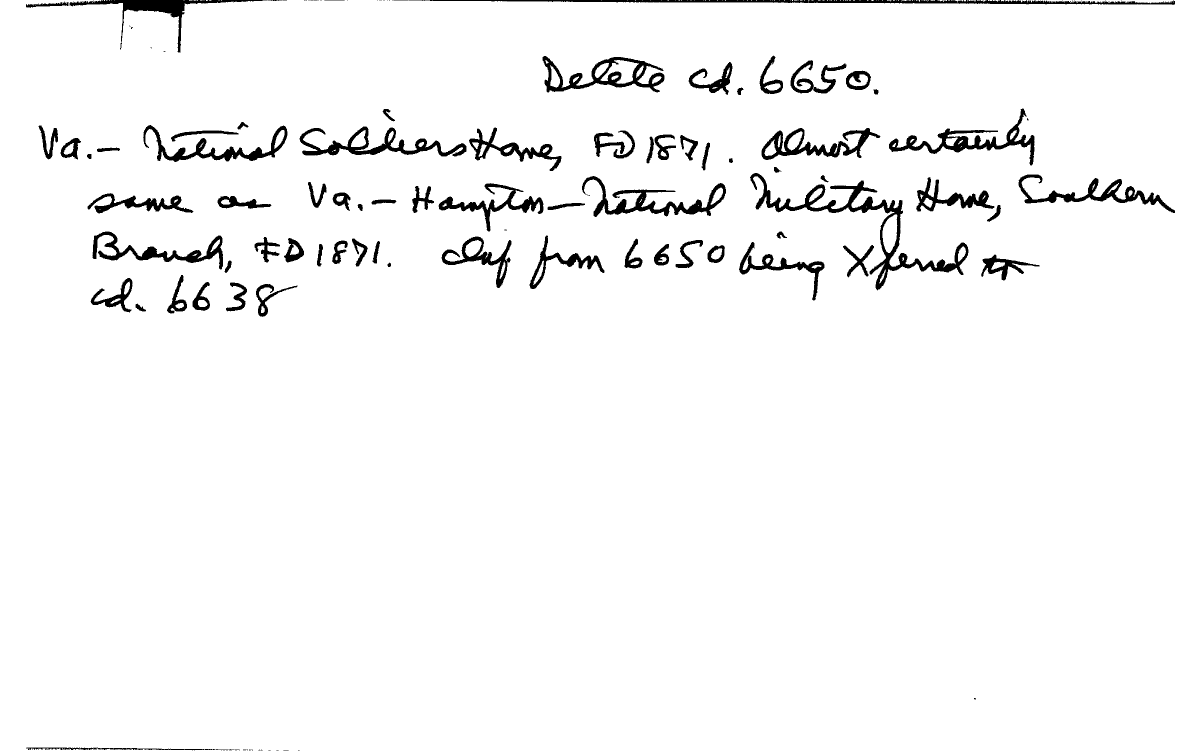 Delete cd. 6650.
Va. - National Soldiers Home, FD 1871. Almost certainly
same as Va. - Hampton - National Military Home, Southern
Branch, FD 1871. Inf from 6650 being Xferred to
cd. 6638